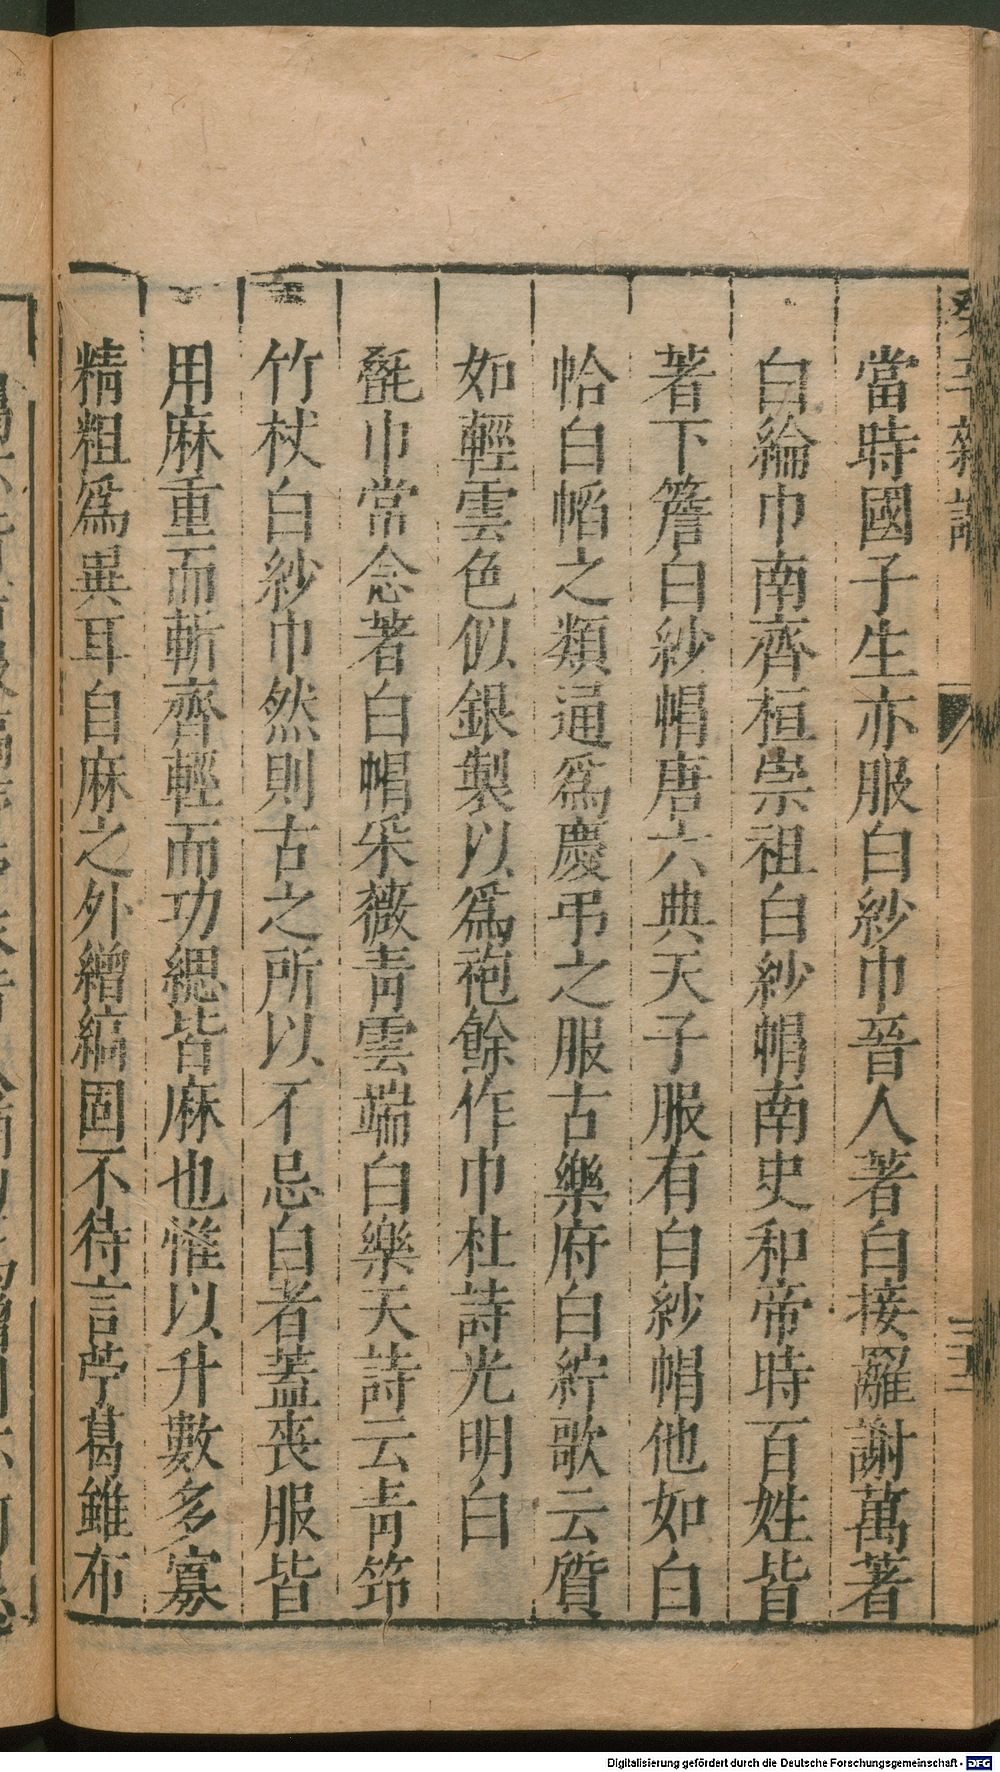 當時國子生亦服白紗巾晉人著白接䍦謝萬著
白綸巾南齊桓崇祖白紗帽南史和帝時百姓皆
著下簷白紗帽唐六典天子服有白紗帽他如白
帢白幍之類通爲慶弔之服古樂府白紵歌云質
如輕雲色似銀製以爲袍餘作巾杜詩光明白
㲲巾常念著白帽采薇青雲端白樂天詩云青筇
竹杖白紗巾然則古之所以不忌白者蓋喪服皆
用麻重而斬齊輕而功緦皆麻也惟以升數多寡
精粗爲異耳自麻之外繒縞固不待言苧葛雖布
Digitalisierung gefördert durch die Deutsche Forschungsgemeinschaft - DFG